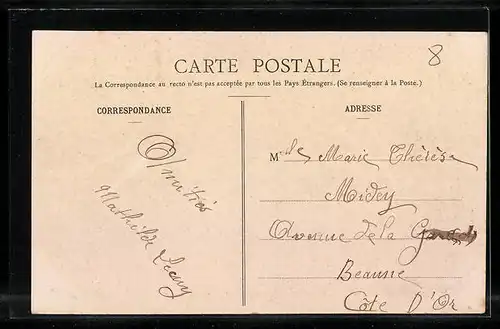 8
CARTE POSTALE
La Correspondance au recto n'est pas acceptée par tous les Pays Étrangers. (Se renseigner à la Poste.)
CORRESPONDANCE
ADRESSE
Amitiés
Mathilde
Mlle Marie Thérèse
Midey
Avenue de la
Beaune
Côte D'Or